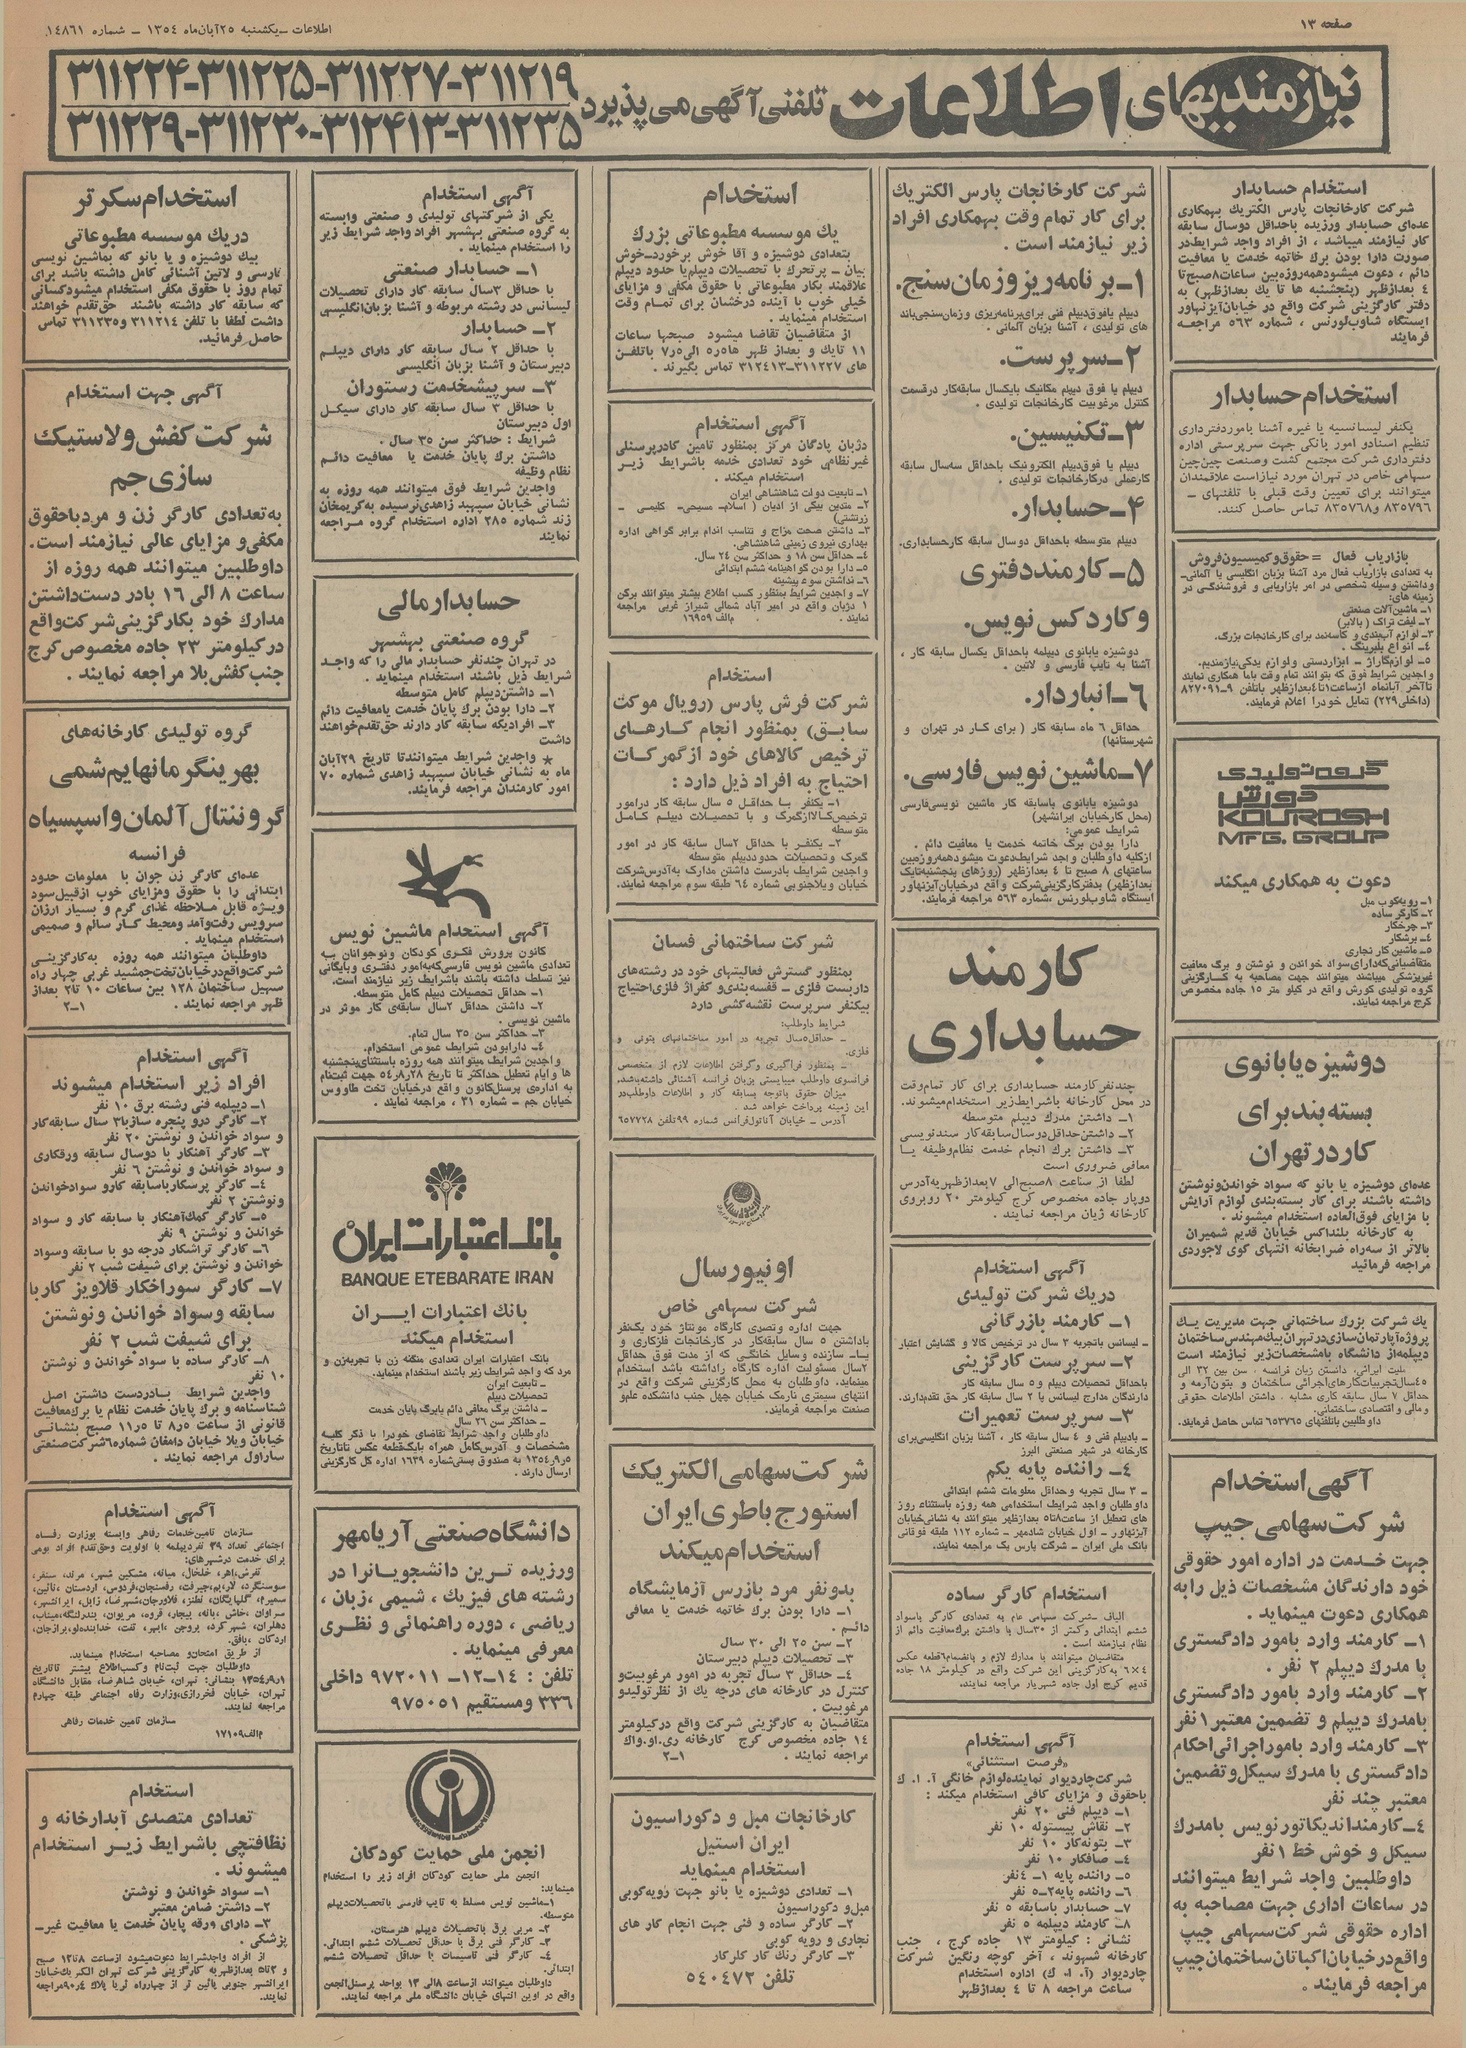 صفحه ۱۳
اطلاعات ـ یکشنبه ۲۵ آبان ماه ۱۳۵۴ ـ شماره ۱۴۸۶۱
نیازمندیهای اطلاعات تلفنی آگهی می پذیرد
۳۱۱۲۱۹-۳۱۱۲۲۷-۳۱۱۲۲۵-۳۱۱۲۲۴
۳۱۱۲۳۵-۳۱۲۴۱۳-۳۱۱۲۳۰-۳۱۱۲۲۹
استخدام حسابدار
شرکت کارخانجات پارس الکتریک بهمکاری
عده‌ای حسابدار ورزیده باحداقل دوسال سابقه
کار نیازمند میباشد ، از افراد واجد شرایط در
صورت دارا بودن برک خاتمه خدمت یا معافیت
دائم ، دعوت میشود همه روزه بین ساعات ۸ صبح تا
۴ بعدازظهر (پنجشنبه ها تا یک بعدازظهر) به
دفتر کارگزینی شرکت واقع در خیابان آیزنهاور
ایستگاه شاوب‌لورنس ، شماره ۵۶۳ مراجعه
فرمایند
استخدام حسابدار
یکنفر لیسانسیه یا غیره آشنا بامور دفترداری
تنظیم اسناد و امور بانکی جهت سرپرستی اداره
دفترداری شرکت مجتمع کشت وصنعت چین‌چین
سهامی خاص در تهران مورد نیاز است علاقمندان
میتوانند برای تعیین وقت قبلی با تلفنهای -
۸۳۵۷۹۶ و ۸۳۵۷۶۸ تماس حاصل کنند.
بازاریاب فعال = حقوق و کمیسیون فروش
به تعدادی بازاریاب فعال مرد آشنا بزبان انگلیسی یا آلمانی-
و داشتن وسیله شخصی در امر بازاریابی و فروشندگی در
زمینه های:
۱ـ ماشین‌آلات صنعتی
۲ـ لیفت تراک ( بالابر)
۴ـ انواع بلبرینگ.
۵ـ لوازم گاراژ ـ ابزاردستی و لوازم یدکی نیازمندیم.
واجدین شرایط فوق که بتوانند تمام وقت باما همکاری نمایند
(داخلی ۲۲۹) تمایل خود را اعلام فرمایند.
گروه تولیدی
کورش
KOUROSH
MFG. GROUP
دعوت به همکاری میکند
۱ـ رویه‌کوب مبل
۲ـ کارگر ساده
۳ـ چرخکار
۴ـ برشکار
۵ـ ماشین کار نجاری
متقاضیانی که دارای سواد خواندن و نوشتن و برگ معافیت
غیرپزشکی میباشند میتوانند جهت مصاحبه به کارگزینی
گروه تولیدی کورش واقع در کیلو متر ۱۵ جاده مخصوص
کرج مراجعه نمایند.
دوشیزه یا بانوی
بسته بند برای
کار در تهران
عده‌ای دوشیزه یا بانو که سواد خواندن و نوشتن
داشته باشند برای کار بسته‌بندی لوازم آرایش
با مزایای فوق‌العاده استخدام میشوند .
به کارخانه بلنداکس خیابان قدیم شمیران
بالاتر از سه‌راه ضرابخانه انتهای کوی لاجوردی
مراجعه فرمائید
یک شرکت بزرگ ساختمانی جهت مدیریت یک
پروژه آپارتمان‌سازی در تهران بیک مهندس ساختمان
دیپلمه از دانشگاه بامشخصات زیر نیازمند است
حداقل ۷ سال سابقه کاری مشابه . داشتن اطلاعات حقوقی
و مالی و اقتصادی ساختمانی.
داوطلبین باتلفنهای ۶۵۳۷۶۵ تماس حاصل فرمایند.
آگهی استخدام
شرکت سهامی جیپ
جهت خدمت در اداره امور حقوقی
خود دارندگان مشخصات ذیل را به
همکاری دعوت مینماید .
۱ـ کارمند وارد بامور دادگستری
با مدرک دیپلم ۲ نفر .
۲ـ کارمند وارد بامور دادگستری
بامدرک دیپلم و تضمین معتبر ۱ نفر
۳ـ کارمند وارد بامور اجرائی احکام
دادگستری با مدرک سیکل و تضمین
معتبر چند نفر
۴ـ کارمند اندیکاتور نویس بامدرک
سیکل و خوش خط ۱ نفر
داوطلبین واجد شرایط میتوانند
در ساعات اداری جهت مصاحبه به
اداره حقوقی شرکت سهامی جیپ
واقع در خیابان اکباتان ساختمان جیپ
مراجعه فرمایند .
شرکت کارخانجات پارس الکتریک
برای کار تمام وقت بهمکاری افراد
زیر نیازمند است .
۱ـ برنامه ریز و زمان سنج.
دیپلم یا فوق دیپلم فنی برای برنامه‌ریزی و زمان‌سنجی باند
های تولیدی ، آشنا بزبان آلمانی .
۲ـ سرپرست.
دیپلم یا فوق دیپلم مکانیک بایکسال سابقه‌کار در قسمت
کنترل مرغوبیت کارخانجات تولیدی .
۳ـ تکنیسین.
دیپلم یا فوق‌دیپلم الکترونیک باحداقل سه‌سال سابقه
کارعملی در کارخانجات تولیدی .
۴ـ حسابدار.
دیپلم متوسطه باحداقل دوسال سابقه کار حسابداری.
۵ـ کارمند دفتری
و کاردکس نویس.
دوشیزه یا بانوی دیپلمه باحداقل یکسال سابقه کار ،
آشنا به تایپ فارسی و لاتین .
۶ـ انباردار.
حداقل ۶ ماه سابقه کار ( برای کار در تهران و
شهرستانها)
۷ـ ماشین نویس فارسی.
دوشیزه یا بانوی باسابقه کار ماشین نویسی فارسی
(محل کار خیابان ایرانشهر)
شرایط عمومی:
دارا بودن برگ خاتمه خدمت یا معافیت دائم .
از کلیه داوطلبان واجد شرایط دعوت میشود همه‌روزه بین
ساعتهای ۸ صبح تا ۴ بعدازظهر (روزهای پنجشنبه تا یک
بعدازظهر) بدفتر کارگزینی شرکت واقع در خیابان آیزنهاور
ایستگاه شاوب‌لورنس ، شماره ۵۶۳ مراجعه فرمایند.
کارمند
حسابداری
چند نفر کارمند حسابداری برای کار تمام وقت
در محل کارخانه باشرایط زیر استخدام میشوند.
۱ـ داشتن مدرک دیپلم متوسطه
۲ـ داشتن حداقل دوسال سابقه‌کار سندنویسی
۳ـ داشتن برک انجام خدمت نظام‌وظیفه یا
معافی ضروری است
لطفا از ساعت ۸ صبح الی ۷ بعدازظهر به آدرس
دوپار جاده مخصوص کرج کیلومتر ۲۰ روبروی
کارخانه ژیان مراجعه نمایند .
آگهی استخدام
در یک شرکت تولیدی
۱ـ کارمند بازرگانی
ـ لیسانس باتجربه ۳ سال در ترخیص کالا و گشایش اعتبار
۲ـ سرپرست کارگزینی
باحداقل تحصیلات دیپلم و ۵ سال سابقه کار
دارندگان مدارج لیسانس با ۲ سال سابقه کار حق تقدم دارند.
۳ـ سرپرست تعمیرات
ـ بادیپلم فنی و ۴ سال سابقه کار ، آشنا بزبان انگلیسی برای
کارخانه در شهر صنعتی البرز
۴ـ راننده پایه یکم
ـ ۳ سال تجربه وحداقل معلومات ششم ابتدائی
داوطلبان واجد شرایط استخدامی همه روزه باستثناء روز
های تعطیل از ساعت ۸ تا ۵ بعدازظهر میتوانند به نشانی خیابان
آیزنهاور ـ اول خیابان شادمهر ـ شماره ۱۱۲ طبقه فوقانی
بانک ملی ایران ـ شرکت پارس پک مراجعه نمایند.
استخدام کارگر ساده
الیاف ـ شرکت سهامی عام به تعدادی کارگر باسواد
ششم ابتدائی وکمتر از ۳۰ سال با داشتن برک معافیت دائم از
نظام نیازمند است .
متقاضیان میتوانند با مدارک لازم و بانضمام ۶ قطعه عکس
۴×۶ به کارگزینی این شرکت واقع در کیلومتر ۱۸ جاده
قدیم کرج اول جاده شهریار مراجعه نمایند.
آگهی استخدام
«فرصت استثنائی»
شرکت چاردیوار نماینده لوازم خانگی آ. ا. ک
باحقوق و مزایای کافی استخدام میکند :
۱ـ دیپلم فنی ۲۰ نفر
۲ـ نقاش پیستوله ۱۰ نفر
۳ـ بتونه‌کار ۱۰ نفر
۴ـ صافکار ۱۰ نفر
۵ـ راننده پایه ۱ـ ۴ نفر
۶ـ راننده پایه ۲ـ ۵ نفر
۷ـ حسابدار باسابقه ۵ نفر
۸ـ کارمند دیپلمه ۵ نفر
نشانی : کیلومتر ۱۳ جاده کرج ، جنب
کارخانه شهوند ، آخر کوچه رنگین شرکت
چاردیوار (آ. ا. ک) اداره استخدام
ساعت مراجعه ۸ تا ۴ بعدازظهر
استخدام
یک موسسه مطبوعاتی بزرک
بتعدادی دوشیزه و آقا خوش برخورد ـ خوش
بیان ـ پرتحرک با تحصیلات دیپلم یا حدود دیپلم
علاقمند بکار مطبوعاتی با حقوق مکفی و مزایای
خیلی خوب با آینده درخشان برای تمام وقت
استخدام مینماید .
از متقاضیان تقاضا میشود صبحها ساعات
های ۳۱۱۲۲۷ـ۳۱۲۴۱۳ تماس بگیرند .
آگهی استخدام
دژبان پادگان مرکز بمنظور تامین کادر پرسنلی
غیرنظامی خود تعدادی خدمه باشرایط زیر
استخدام میکند .
۱ـ تابعیت دولت شاهنشاهی ایران
۲ـ متدین بیکی از ادیان ( اسلام ـ مسیحی ـ کلیمی ـ
زرتشتی)
۳ـ داشتن صحت مزاج و تناسب اندام برابر گواهی اداره
بهداری نیروی زمینی شاهنشاهی.
۴ـ حداقل سن ۱۸ و حداکثر سن ۲۴ سال.
۵ـ دارا بودن گواهینامه ششم ابتدائی
۶ـ نداشتن سوء پیشینه
۷ـ واجدین شرایط بمنظور کسب اطلاع بیشتر میتوانند برکن
۱ دژبان واقع در امیر آباد شمالی شیراز غربی مراجعه
نمایند . م‌الف ۱۶۹۵۹
استخدام
شرکت فرش پارس (رویال موکت
سابق) بمنظور انجام کارهای
ترخیص کالاهای خود از گمرکات
احتیاج به افراد ذیل دارد :
۱ـ یکنفر با حداقل ۵ سال سابقه کار در امور
ترخیص کالا از گمرک و با تحصیلات دیپلم کامل
متوسطه
۲ـ یکنفر با حداقل ۲ سال سابقه کار در امور
گمرک وتحصیلات حدود دیپلم متوسطه
واجدین شرایط بادرست داشتن مدارک به آدرس شرکت
خیابان ویلا جنوبی شماره ۶۴ طبقه سوم مراجعه نمایند.
شرکت ساختمانی فسان
بمنظور گسترش فعالیتهای خود در رشته‌های
داربست فلزی ـ قفسه‌بندی و کفراژ فلزی احتیاج
بیکنفر سرپرست نقشه‌کشی دارد
شرایط داوطلب:
ـ حداقل ۵ سال تجربه در امور ساختمانهای بتونی و
فلزی.
ـ بمنظور فراگیری و گرفتن اطلاعات لازم از متخصص
فرانسوی داوطلب میبایستی بزبان فرانسه آشنائی داشته باشد.
میزان حقوق باتوجه بسابقه کار و اطلاعات داوطلب در
این زمینه پرداخت خواهد شد .
آدرس ـ خیابان آناتول‌فرانس شماره ۹۹ تلفن ۶۵۷۷۲۸
اونیورسال
شرکت سهامی خاص
جهت اداره وتصدی کارگاه مونتاژ خود یکنفر
باداشتن ۵ سال سابقه‌کار در کارخانجات فلزکاری و
یا سازنده وسایل خانگی که از مدت فوق حداقل
۲ سال مسئولیت اداره کارگاه راداشته باشد استخدام
مینماید، داوطلبان به محل کارگزینی شرکت واقع در
انتهای سیمتری نارمک خیابان چهل جنب دانشکده علم و
صنعت مراجعه فرمایند.
شرکت سهامی الکتریک
استورج باطری ایران
استخدام میکند
بدو نفر مرد بازرس آزمایشگاه
۱ـ دارا بودن برک خاتمه خدمت یا معافی
دائم .
۲ـ سن ۲۵ الی ۳۰ سال
۳ـ تحصیلات دیپلم دبیرستان
۴ـ حداقل ۳ سال تجربه در امور مرغوبیت و
کنترل در کارخانه های درجه یک از نظر تولید و
مرغوبیت .
متقاضیان به کارگزینی شرکت واقع در کیلومتر
۱۴ جاده مخصوص کرج کارخانه ری.او.واک
مراجعه نمایند . ۱ـ۲
کارخانجات مبل و دکوراسیون
ایران استیل
استخدام مینماید
۱ـ تعدادی دوشیزه یا بانو جهت رویه‌کوبی
مبل و دکوراسیون
۲ـ کارگر ساده و فنی جهت انجام کار های
نجاری و رویه کوبی
۳ـ کارگر رنگ کار کلرکار
تلفن ۵۴۰۴۷۲
آگهی استخدام
یکی از شرکتهای تولیدی و صنعتی وابسته
به گروه صنعتی بهشهر افراد واجد شرایط زیر
را استخدام مینماید .
۱ـ حسابدار صنعتی
با حداقل ۳ سال سابقه کار دارای تحصیلات
لیسانس در رشته مربوطه و آشنا بزبان انگلیسی
۲ـ حسابدار
با حداقل ۲ سال سابقه کار دارای دیپلم
دبیرستان و آشنا بزبان انگلیسی
۳ـ سرپیشخدمت رستوران
با حداقل ۳ سال سابقه کار دارای سیکل
اول دبیرستان
شرایط : حداکثر سن ۳۵ سال .
داشتن برک پایان خدمت یا معافیت دائم
نظام وظیفه
واجدین شرایط فوق میتوانند همه روزه به
نشانی خیابان سپهبد زاهدی نرسیده به کریمخان
زند شماره ۲۸۵ اداره استخدام گروه مراجعه
نمایند
حسابدار مالی
گروه صنعتی بهشهر
در تهران چندنفر حسابدار مالی را که واجد
شرایط ذیل باشند استخدام مینماید.
۱ـ داشتن دیپلم کامل متوسطه
۲ـ دارا بودن برک پایان خدمت یا معافیت دائم
۳ـ افرادیکه سابقه کار دارند حق تقدم خواهند
داشت
★ واجدین شرایط میتوانند تا تاریخ ۲۹ آبان
ماه به نشانی خیابان سپهبد زاهدی شماره ۷۰
امور کارمندان مراجعه فرمایند.
آگهی استخدام ماشین نویس
کانون پرورش فکری کودکان ونوجوانان به
تعدادی ماشین نویس فارسی که به‌امور دفتری و بایگانی
نیز تسلط داشته باشند باشرایط زیر نیازمند است.
۱ـ حداقل تحصیلات دیپلم کامل متوسطه.
۲ـ داشتن حداقل ۲ سال سابقه‌ی کار موثر در
ماشین نویسی .
۳ـ حداکثر سن ۳۵ سال تمام.
۴ـ دارا بودن شرایط عمومی استخدام.
واجدین شرایط میتوانند همه روزه باستثنای پنجشنبه
ها و ایام تعطیل حداکثر تا تاریخ ۵۴ر۸ر۲۸ جهت ثبت‌نام
به اداره‌ی پرسنل کانون واقع در خیابان تخت طاووس
خیابان جم ـ شماره ۳۱ ، مراجعه نمایند .
بانک اعتبارات ایران
BANQUE ETEBARATE IRAN
بانک اعتبارات ایران
استخدام میکند
مرد که واجد شرایط زیر باشند استخدام مینماید.
ـ تابعیت ایران
تحصیلات دیپلم
ـ داشتن برگ معافی دائم یا برگ پایان خدمت
ـ حداکثر سن ۲۶ سال
داوطلبان واجد شرایط تقاضای خود را با ذکر کلیه
مشخصات و آدرس کامل همراه با یک قطعه عکس تا تاریخ
۱۳۵۴ر۹ر۵ به صندوق پستی شماره ۱۶۳۹ اداره کل کارگزینی
ارسال دارند .
دانشگاه صنعتی آریامهر
ورزیده ترین دانشجویانرا در
رشته های فیزیک ، شیمی ،زبان ،
ریاضی ، دوره راهنمائی و نظری
معرفی مینماید.
تلفن : ۱۴ـ۱۲ـ ۹۷۲۰۱۱ داخلی
۳۳۶ ومستقیم ۹۷۵۰۵۱
انجمن ملی حمایت کودکان
انجمن ملی حمایت کودکان افراد زیر را استخدام
مینماید:
۱ـ ماشین نویس مسلط به تایپ فارسی باتحصیلات دیپلم
متوسطه.
۲ـ مربی برق باتحصیلات دیپلم هنرستان.
۳ـ کارگر فنی برق با حداقل تحصیلات ششم ابتدائی.
۴ـ کارگر فنی تاسیسات با حداقل تحصیلات ششم
ابتدائی.
داوطلبان میتوانند از ساعت ۸ الی ۱۳ بواحد پرسنل انجمن
واقع در اوین انتهای خیابان دانشگاه ملی مراجعه نمایند.
استخدام سکرتر
در یک موسسه مطبوعاتی
بیک دوشیزه و یا بانو که بماشین نویسی
فارسی و لاتین آشنائی کامل داشته باشد برای
تمام روز با حقوق مکفی استخدام میشود کسانی
که سابقه کار داشته باشند حق تقدم خواهند
داشت لطفا با تلفن ۳۱۱۲۱۴ و ۳۱۱۲۳۵ تماس
حاصل فرمائید.
آگهی جهت استخدام
شرکت کفش ولاستیک
سازی جم
به تعدادی کارگر زن و مرد باحقوق
مکفی و مزایای عالی نیازمند است.
داوطلبین میتوانند همه روزه از
ساعت ۸ الی ۱۶ بادر دست داشتن
مدارک خود بکارگزینی شرکت واقع
در کیلومتر ۲۳ جاده مخصوص کرج
جنب کفش بلا مراجعه نمایند .
گروه تولیدی کارخانه‌های
بهرینگر مانهایم شمی
گروننتال آلمان و اسپسیاه
فرانسه
عده‌ای کارگر زن جوان با معلومات حدود
ابتدائی را با حقوق ومزایای خوب ازقبیل سود
ویژه قابل ملاحظه غذای گرم و بسیار ارزان
سرویس رفت‌وآمد ومحیط کار سالم و صمیمی
استخدام مینماید .
داوطلبان میتوانند همه روزه به کارگزینی
شرکت واقع در خیابان تخت جمشید غربی چهار راه
سهیل ساختمان ۱۲۸ بین ساعات ۱۰ تا ۲ بعداز
ظهر مراجعه نمایند . ۱ـ۲
آگهی استخدام
افراد زیر استخدام میشوند
۱ـ دیپلمه فنی رشته برق ۱۰ نفر
۲ـ کارگر درو پنجره ساز با ۳ سال سابقه کار
و سواد خواندن و نوشتن ۲۰ نفر
۳ـ کارگر آهنکار با دوسال سابقه ورقکاری
و سواد خواندن و نوشتن ۶ نفر
۴ـ کارگر پرسکار باسابقه کار و سواد خواندن
ونوشتن ۲ نفر
۵ـ کارگر کمک‌آهنکار با سابقه کار و سواد
خواندن و نوشتن ۹ نفر
۶ـ کارگر تراشکار درجه دو با سابقه وسواد
خواندن و نوشتن برای شیفت شب ۲ نفر
۷ـ کارگر سوراخکار قلاویز کار با
سابقه وسواد خواندن ونوشتن
برای شیفت شب ۲ نفر
۸ـ کارگر ساده با سواد خواندن و نوشتن
۱۰ نفر
واجدین شرایط بادردست داشتن اصل
شناسنامه و برک پایان خدمت نظام یا برک معافیت
قانونی از ساعت ۸ر۵ تا ۱۱ر۵ صبح بنشانی
خیابان ویلا خیابان دامغان شماره ۶ شرکت صنعتی
ساراول مراجعه نمایند .
آگهی استخدام
سازمان تامین خدمات رفاهی وابسته بوزارت رفاه
اجتماعی تعداد ۳۹ نفر دیپلمه با اولویت وحق تقدم افراد بومی
برای خدمت در شهرهای:
تفرش، اهر، خلخال، میانه، مشکین شهر، مرند، سنقر،
از طریق امتحان و مصاحبه استخدام مینماید.
داوطلبان جهت ثبت‌نام وکسب اطلاع بیشتر تا تاریخ
۱۳۵۴ر۹ر۱ بنشانی: تهران، خیابان شاهرضا، مقابل دانشگاه
تهران، خیابان فخررازی، وزارت رفاه اجتماعی طبقه چهارم
مراجعه نمایند.
سازمان تامین خدمات رفاهی
م‌الف ۱۷۱۰۹
استخدام
تعدادی متصدی آبدارخانه و
نظافتچی باشرایط زیر استخدام
میشوند .
۱ـ سواد خواندن و نوشتن
۲ـ داشتن ضامن معتبر
۳ـ دارای ورقه پایان خدمت یا معافیت غیر ـ
پزشکی .
از افراد واجد شرایط دعوت میشود از ساعت ۸ تا ۱۲ صبح
نمایند.